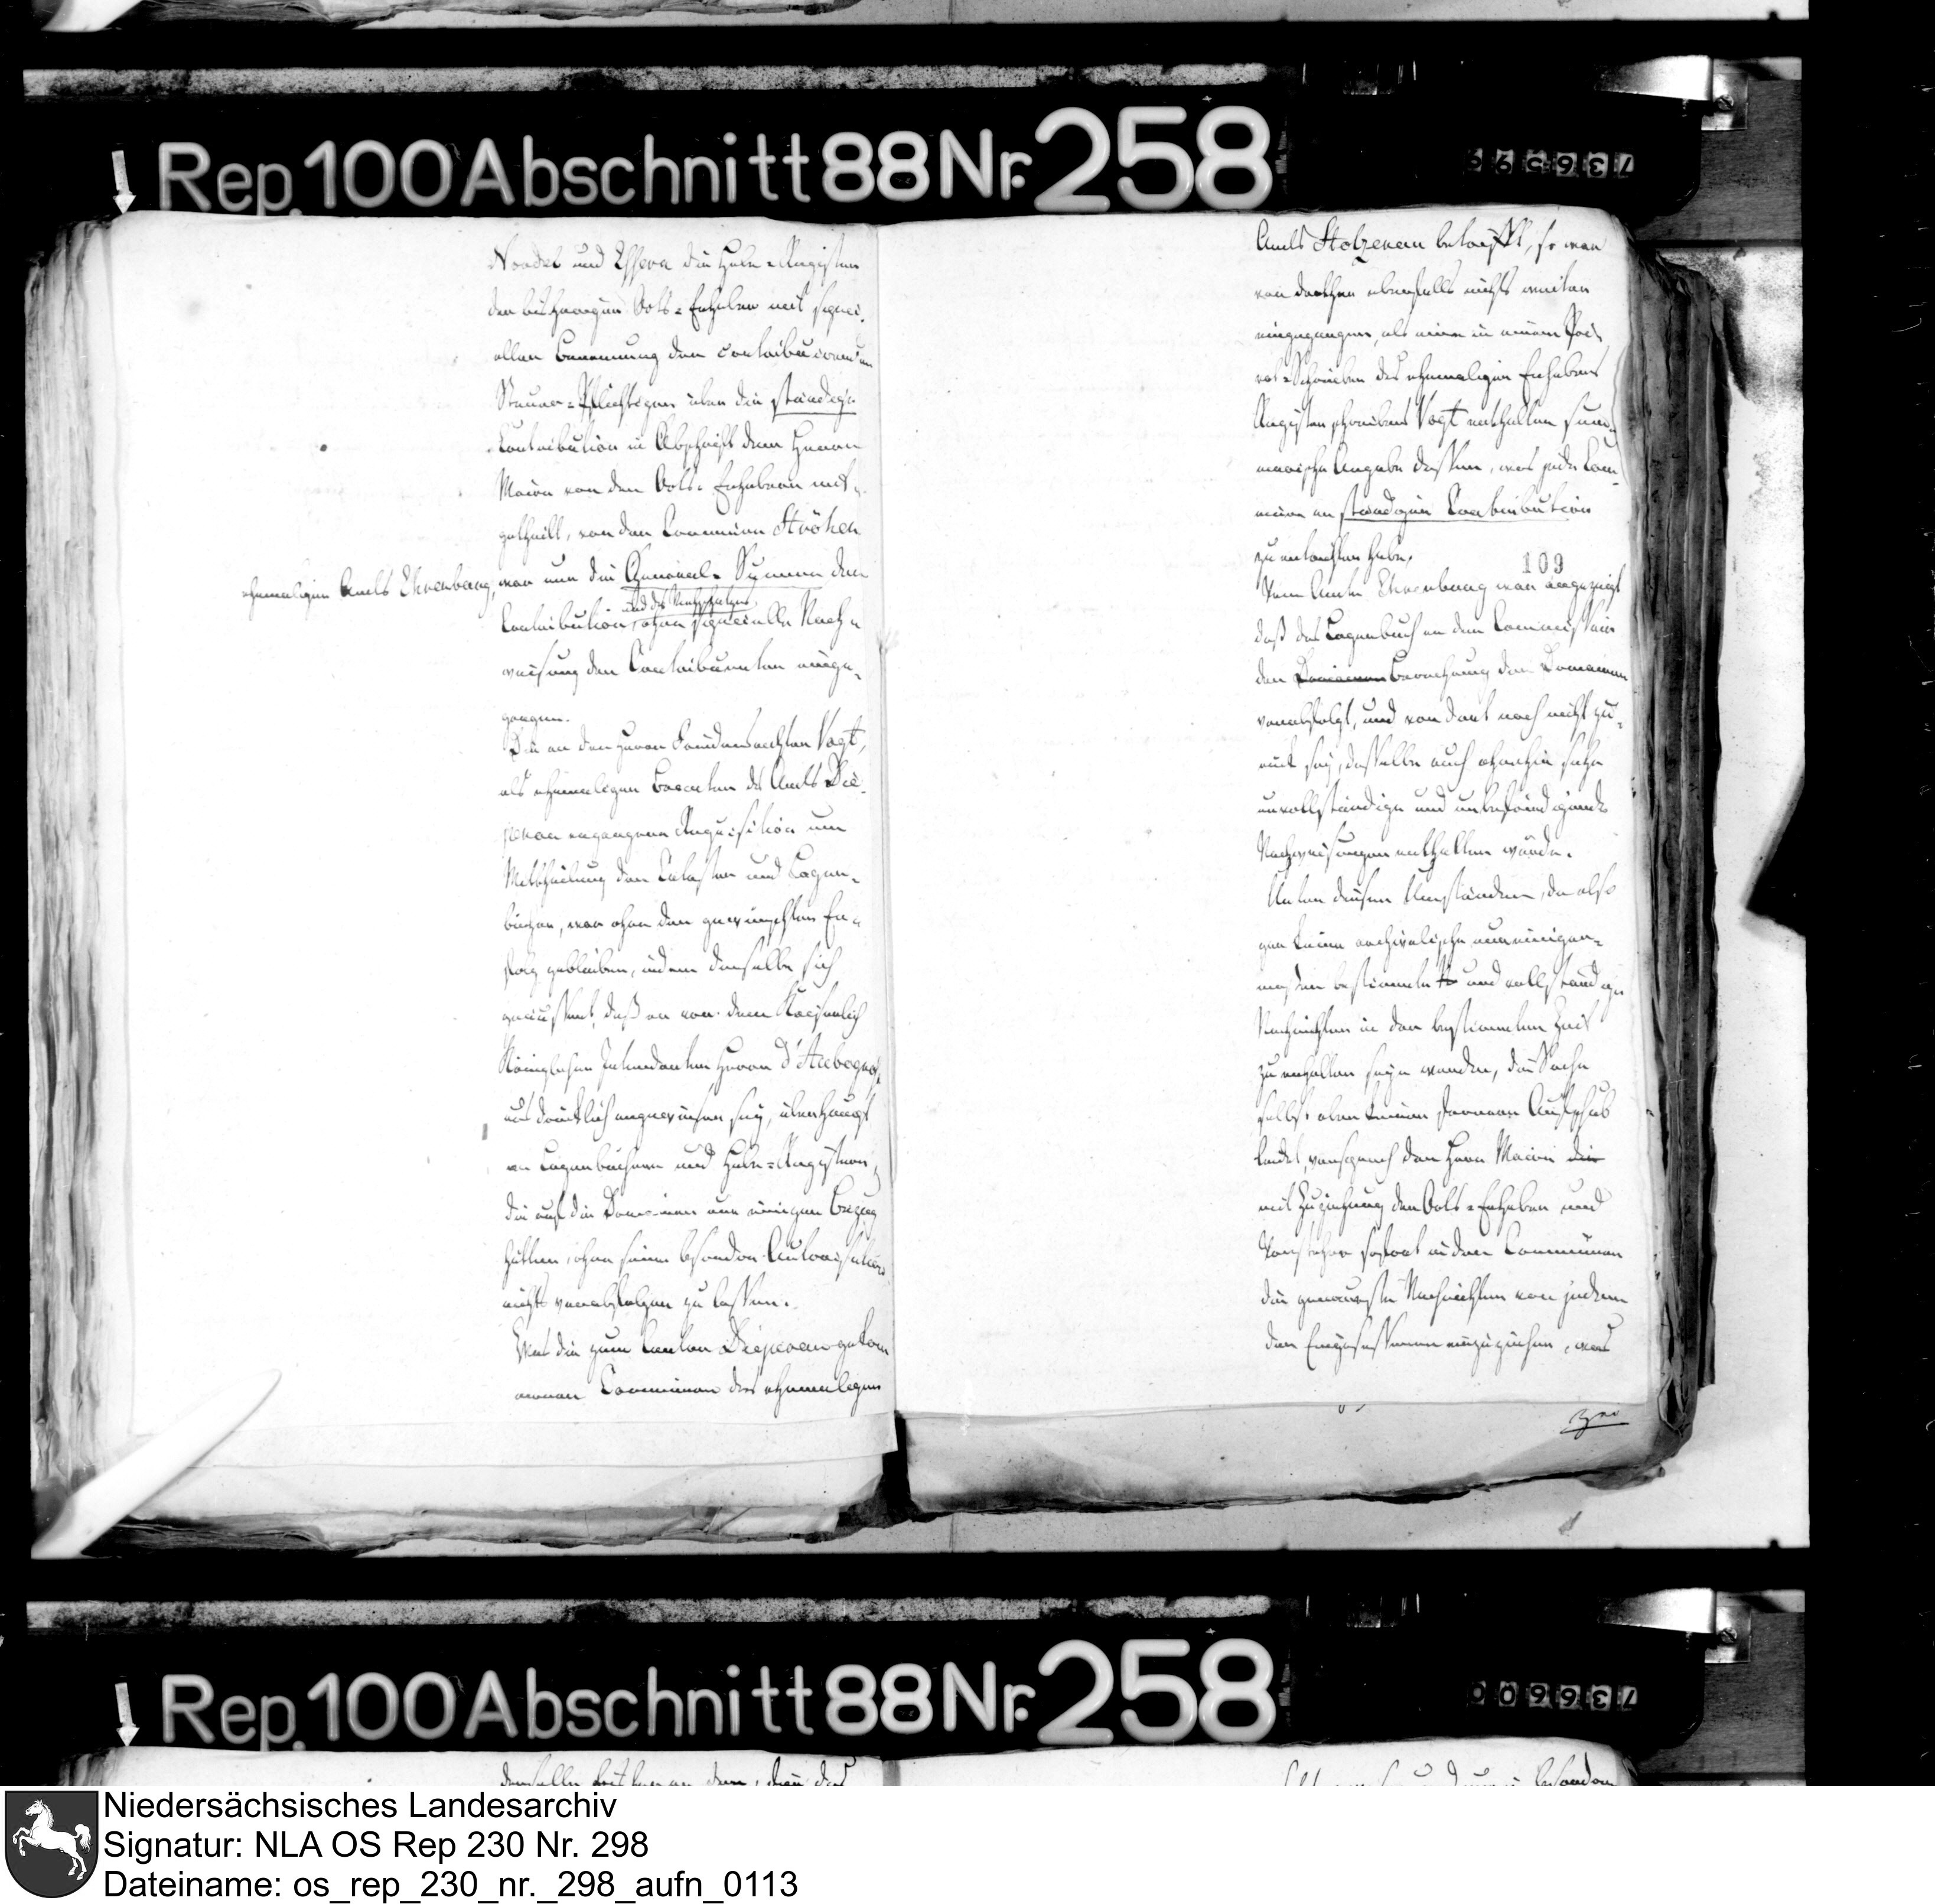 Rep. 100 Abschnitt 88 Nr. 258
736599
Nordel und Essern die Hebe-Register
der bisherigen Orts-Erheber mit speci-
ellen Benennung der contribuirenden
Steuer-Pflichtigen über die ständige
Contribution in Abschrift dem Herrn
Maire von den Orts-Erhebern mit-
getheilt, von der Commune Ströhen
ehemaligen Amts Ehrenburg, war nur die General-Summe der
und des Viehschatzes
Contribution, ohne specielle Nach-
weisung der Contribuenten einge-
gangen.
Die an den Herrn Friedensrichter Vogt,
als ehemaligen Beamten des Amts Die-
penau ergangene Requisition um
Mittheilung der Cataster und Lager-
bücher, war ohne den gewünschten Er-
folg geblieben, indem derselbe sich
geäussert, daß er von dem Kaiserlich
Königlichen Intendanten Herrn d'Aubignosc
ausdrücklich angewiesen sey, überhaupt
an Lagerbüchern und Hebe-Registern,
die auf die Domainen nur einigen Bezug
hätten, ohne seine besondere Autorisation
nichts verabfolgen zu lassen.
Was die zum Canton Diepenau gekom
menen Communen des ehemaligen
Amts Stolzenau betrifft, so war
von dorther ebenfalls nichts weiter
eingegangen, als eine in einem Pri-
vat-Schreiben des ehemaligen Erhebers
Registerschreibers Vogt enthaltene sum-
marische Angabe dessen, was jede Com-
mune an ständiger Contribution
zu entrichten habe.
109
Vom Amte Ehrenburg war angezeigt
daß das Lagerbuch an den Commissair
der Domainen Berechnung der Domainen
verabfolgt, und von dort noch nicht zu-
rück sey, dasselbe auch ohnehin sehr
unvollständige und unbefriedigende
Nachweisungen enthalten würde.
Unter diesen Umständen, da also
gar keine archivalische nur einiger-
maßen bestimmte und vollständige
Nachrichten in der bestimmten Zeit
zu erhalten seyn werden, die Sache
selbst aber keinen fernern Aufschub
leidet, versprach der Herr Maire die
mit Zuziehung der Orts-Erheber und
Vorsteher sofort in den Communen
die genaueste Nachrichten von jedem
der Eingesessenen einzuziehen, was
Rep. 100 Abschnitt 88 Nr. 258
736600
Niedersächsisches Landesarchiv
Signatur: NLA OS Rep 230 Nr. 298
Dateiname: os_rep_230_nr._298_aufn_0113